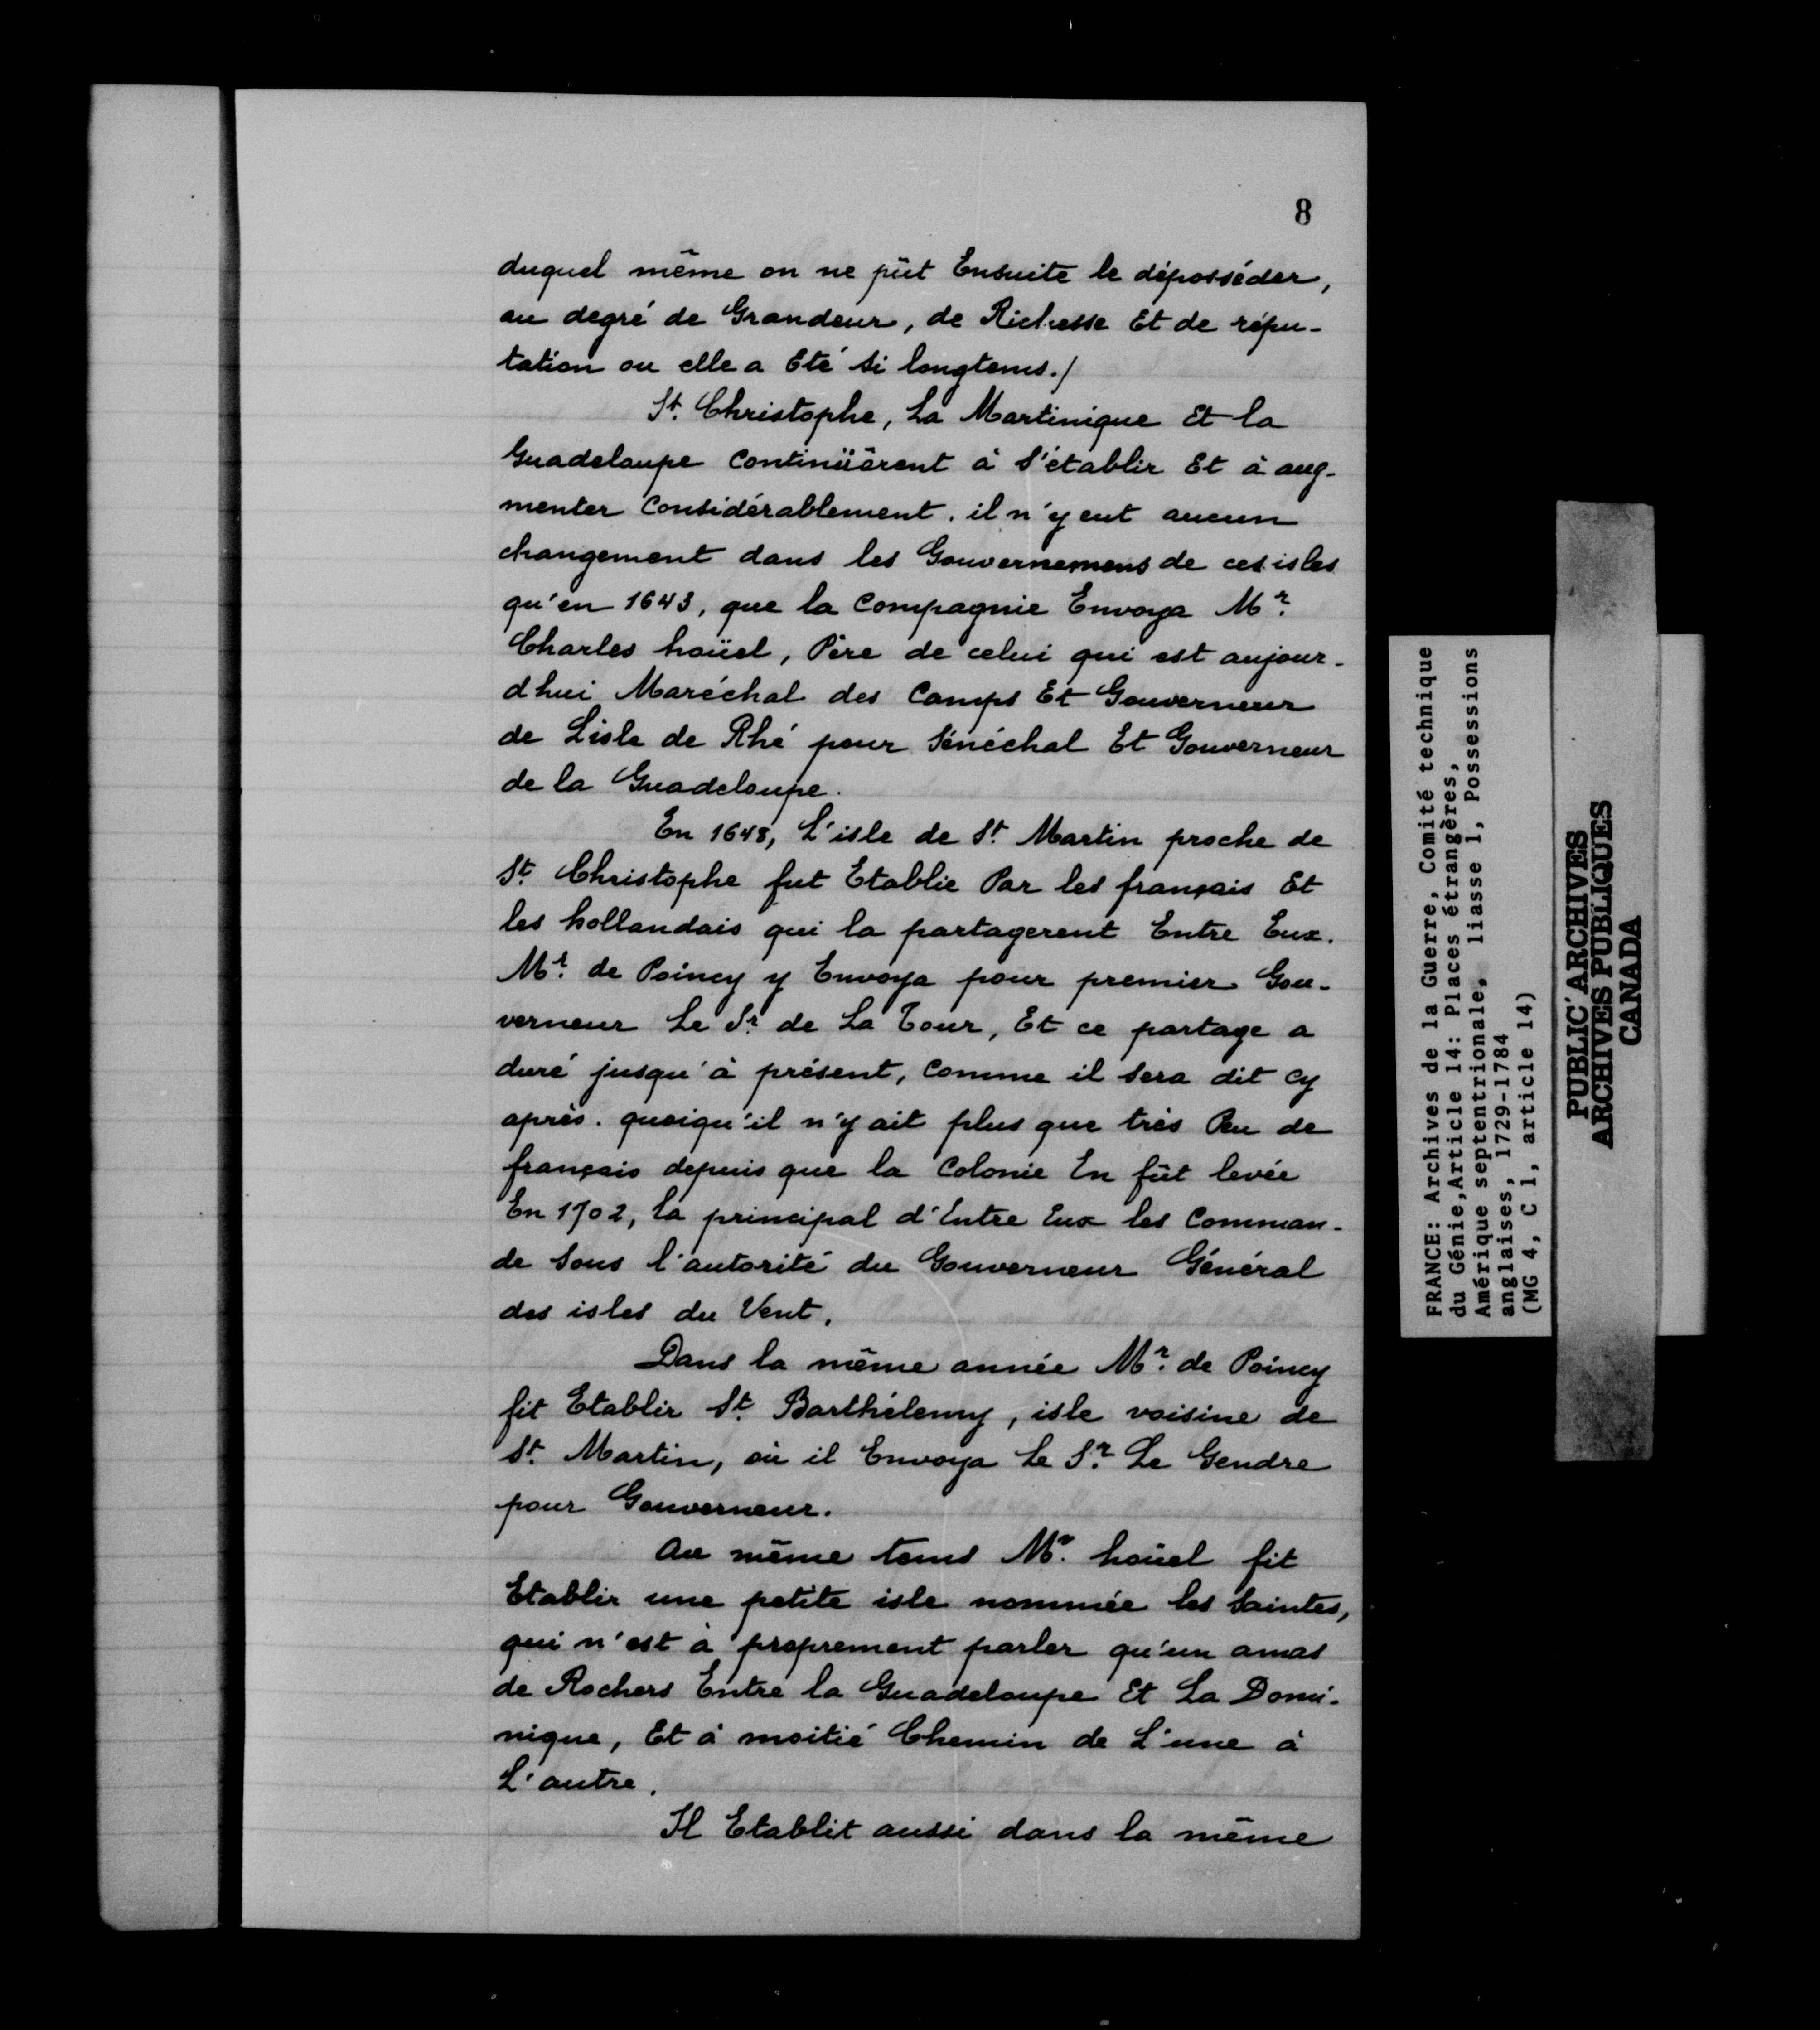 8
duquel même on ne pût Ensuite le dépossèder,
au degré de Grandeur, de Richesse Et de répu-
tation ou elle a Eté si longtems./
St. Christophe, La Martinique Et la
Guadeloupe continüèrent à s'établir Et à aug-
menter considérablement. il n'y eut aucun
changement dans les Gouvernemens de ces isles
qu'en 1643, que la compagnie Envoya Mr.
Charles hoüel, Père de celui qui est aujour-
d'hui Maréchal des Camps Et Gouverneur
de Lisle de Rhé pour Sénéchal Et Gouverneur
de la Guadeloupe.
En 1648, L'isle de St. Martin proche de
St. Christophe fut Etablie Par les français Et
les hollandais qui la partagerent Entre Eux.
Mr. de Poincy y Envoya pour premier Gou-
verneur Le Sr de La Tour, Et ce partage a
duré jusqu'à présent, comme il sera dit cy
après. quoiqu'il n'y ait plus que très Peu de
français depuis que la Colonie En fût levée
En 1702, la principal d'Entre Eux les comman-
de sous l'autorité du Gouverneur Général
des isles du Vent.
Dans la même année Mr. de Poincy
fit Etablir St. Barthélemy, isle voisine de
St. Martin, où il Envoya Le Sr. Le Gendre
pour Gouverneur.
Au même tems Mr. hoüel fit
Etablir une petite isle nommée les Saintes,
qui n'est à proprement parler qu'un amas
de Rochers Entre la Guadeloupe Et La Domi-
nique, Et à moitié Chemin de L'une à
L'autre.
Il Etablit aussi dans la même
FRANCE: Archives de la Guerre, Comité technique
du Génie,Article 14: Places étrangères,
Amérique septentrionale, liasse 1, Possessions
anglaises, 1729-1784
(MG 4, C 1, article 14)
PUBLIC ARCHIVES
ARCHIVES PUBLIQUES
CANADA